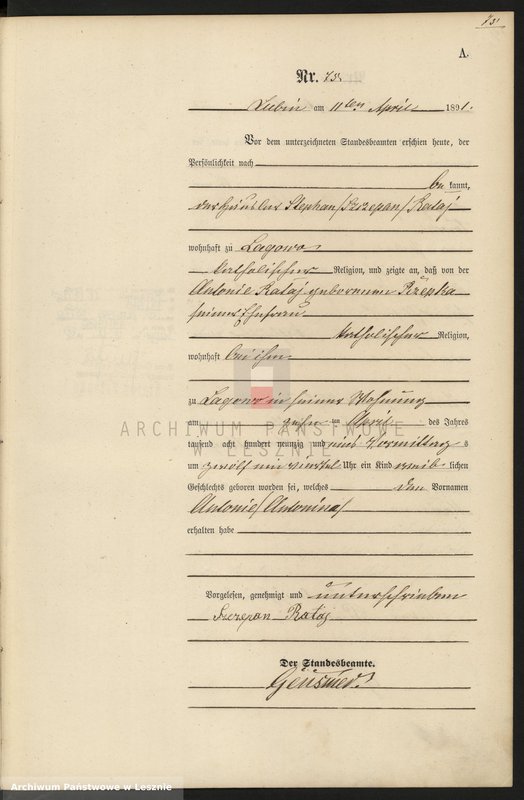 73.
A.
Nr. 73.
Lubin am 11ten April 1891.
Vor dem unterzeichneten Standesbeamten erschien heute, der
Persönlichkeit nach
be kannt,
der Häusler Stephan /Szczepan/ Rataj
wohnhaft zu Lagowo
katholischer Religion, und zeigte an, daß von der
Antonie Rataj geborenen Rzepka
seiner Ehefrau
katholischer Religion,
wohnhaft bei ihm
zu Lagowo in seiner Wohnung
am zehn ten April des Jahres
tausend acht hundert neunzig und eins Vormittag s
um zwölf ein viertel Uhr ein Kind weib lichen
Geschlechts geboren worden sei, welches den Vornamen
Antonie /Antonina/
erhalten habe
Vorgelesen, genehmigt und unterschrieben
Szczepan Rataj
Der Standesbeamte.
ARCHIWUM PAŃSTWOWE
W LESZNIE
Archiwum Państwowe w Lesznie